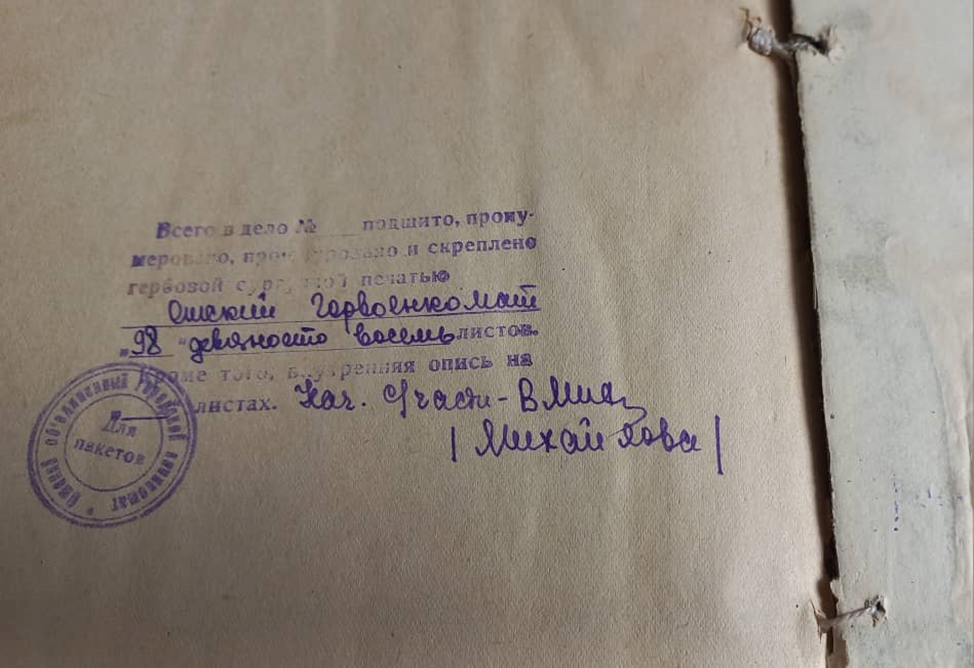 Всего в дело № ___ подшито, прону-
меровано, прошнуровано и скреплено
гербовой сургучной печатью
Омский Горвоенкомат
„98" девяносто восемь листов.
Кроме того, внутренняя опись на
___ листах. Нач.
/Михайлова/
Омский объединенный городской военкомат
Для
пакетов